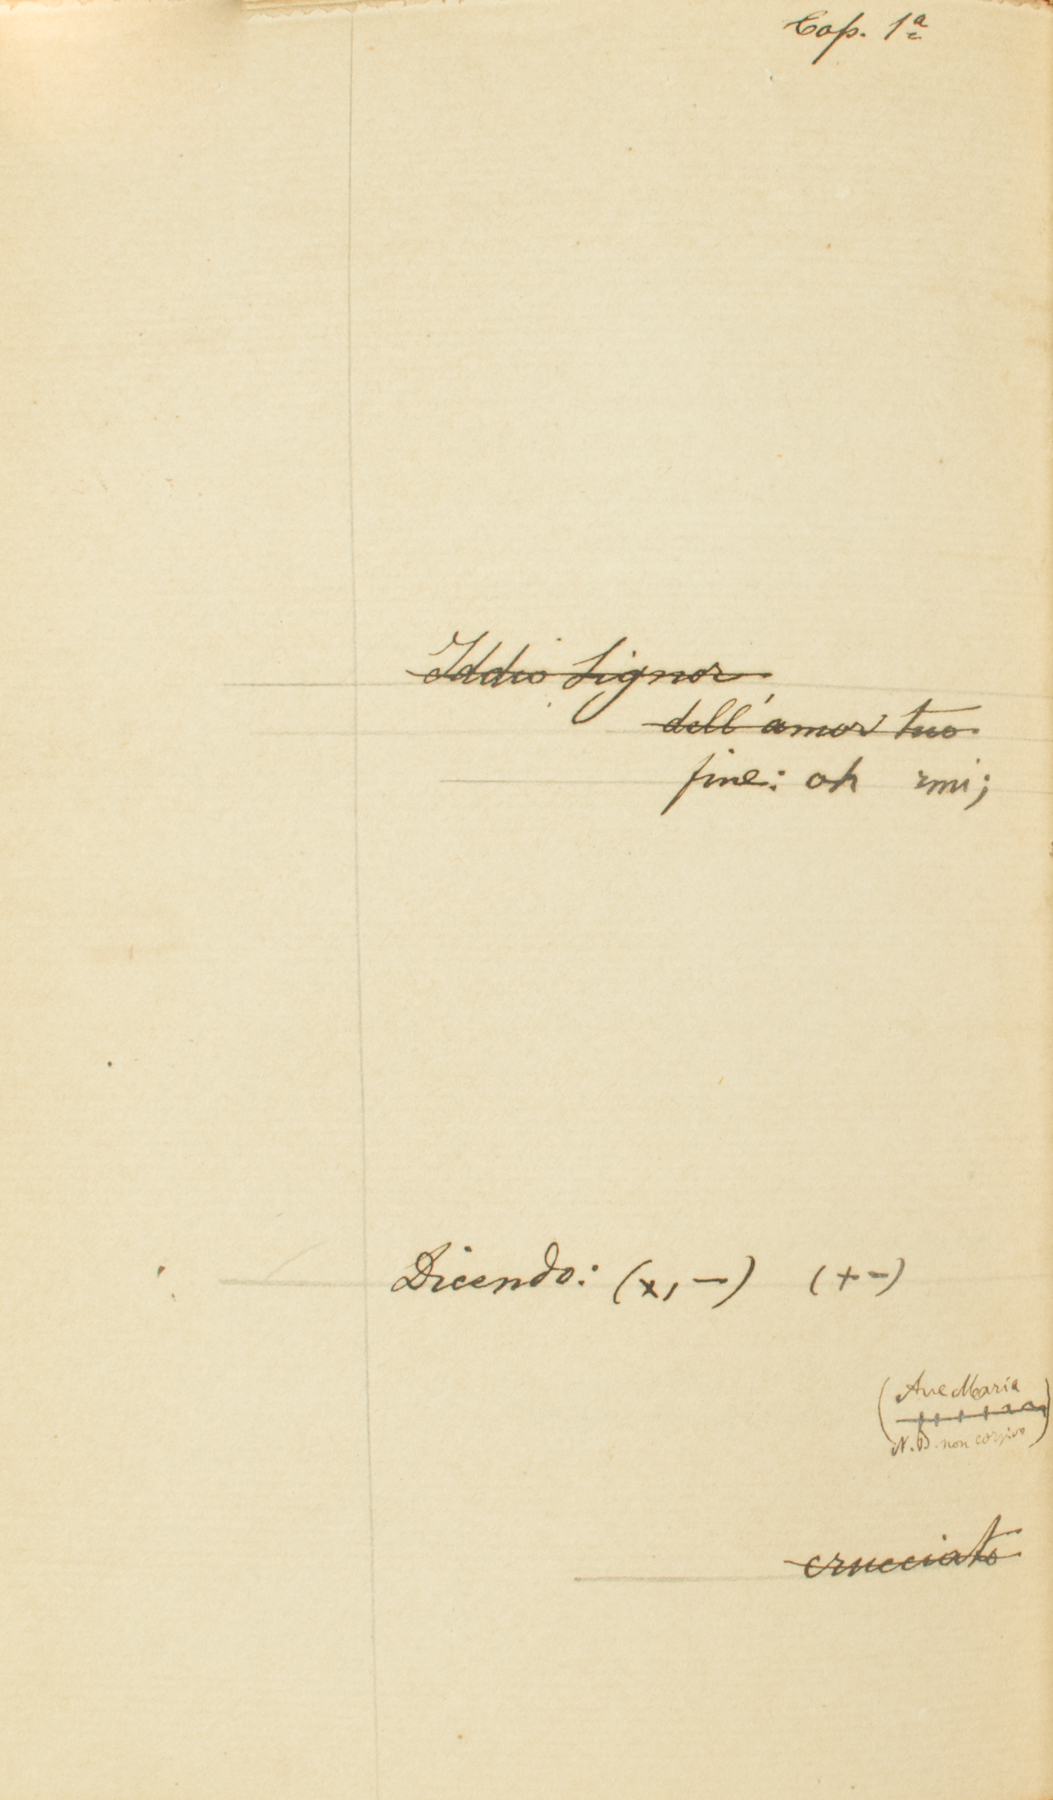 Cap. 1ª
Iddio Signor
dell'amor tuo
fine: oh rmi;
Dicendo: (x, —) (+ -)
(Ave Maria
N.B. non corsivo)
crucciato